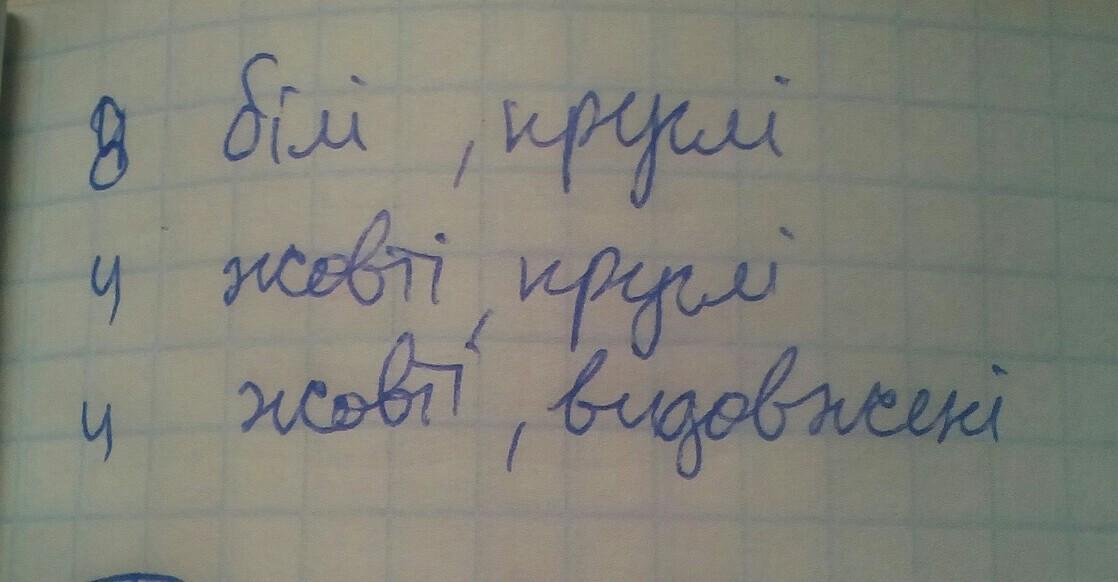 8 білі , круглі
4 жовті , круглі
4 жовті , видовжені